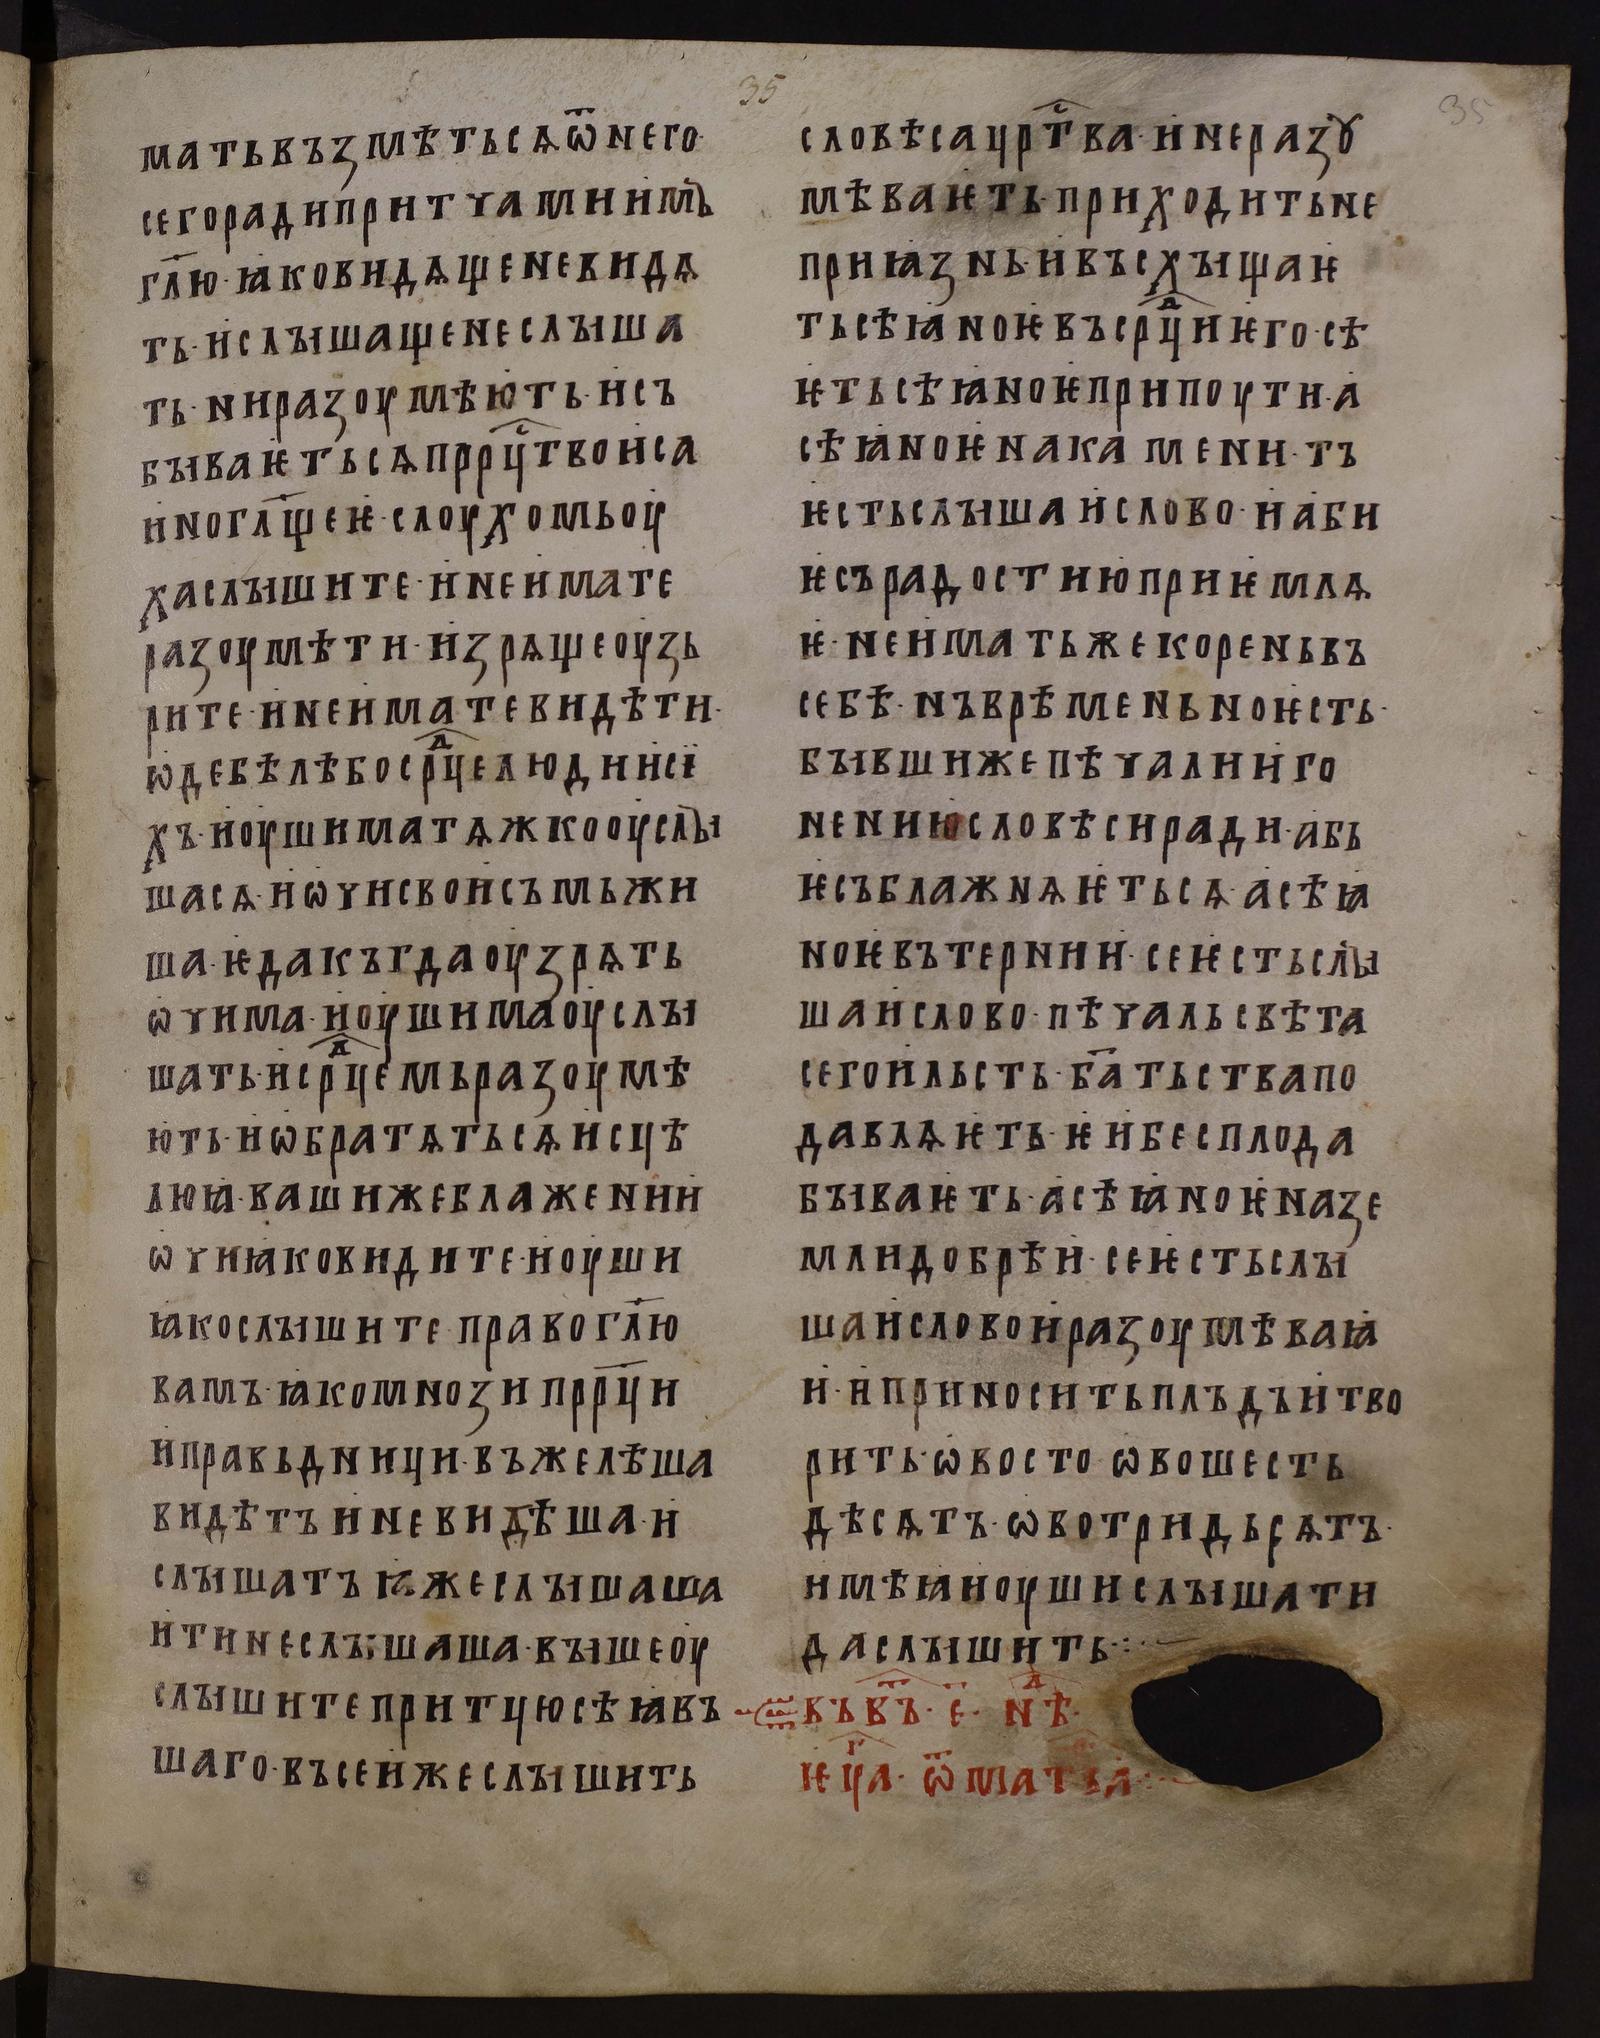 35
35
матьвъзмѣтьсѧѿнего·
сегорадипритчамиимъ
гл҃ю·ꙗковидѧщеневидѧ
ть·ислышащенеслыша
ть·ниразоумѣють·исъ
бываѥтьсѧпррцⷭ҇твоиса
иногл҃щеѥ·слоухомьоу
хаслышите·инеимате
разоумѣти·изрѧщеоузь
рите·инеиматевидѣти·
ѡдебѣлѣбосрⷣцелюдииsї
хъ·иоушиматѧжкооуслы
шасѧ·иѡчисвоисъмьжи
ша·ѥдакъгдаоузрѧть
ѡчима·иоушимаоуслы
шать·исрⷣцемьразоумѣ
ють·иѡбратѧтьсѧисцѣ
люꙗ·вашижеблажении
ѡчиꙗковидите·иоуши
ꙗкослышите·правогл҃ю
вамъ·ꙗкомнозипрр҃ци
иправьдници·въжелѣша
видѣтъиневидѣша·и
слышатъꙗжеслышаша
итинеслышаша·вышеоу
слышитепритцюсѣꙗвъ
шаго·въсеижеслышить
словѣсацрⷭ҇тва·инеразꙋ
мѣваѥть·приходитьне
приꙗзнь·ивъсхыщаѥ
тьсѣꙗноѥвъсрⷣциѥго·сѣ
ѥтьсѣꙗноѥприпоути·а
сѣꙗноѥнакамени·тъ
ѥстьслышаислово·иаби
ѥсърадостиюприѥмлѧ
ѥ·неиматьжекореньвъ
себѣ·нъврѣменьноѥсть·
бывшижепѣчалииго
нениюсловѣсиради·абь
ѥсъблажнѧѥтьсѧ·асѣꙗ
ноѥвътернии·сеѥстьслы
шаислово·пѣчальсвѣта
сегоильсть·ба҃тьствапо
давлѧѥть·ѥибесплода
бываѥть·асѣꙗноѥназе
млидобрѣи·сеѥстьслы
шаисловоиразоумѣваꙗ
и·иприноситьплъдъитво
рить·ѡвосто·ѡвошесть
дѣсѧтъ·ѡвотридьсѧтъ·
имѣꙗиоушислышати
даслышить·:·
въвⷮъ·є҃·нⷣѣ·
ѥⷢ҇ца·ѿматⷴѳа·:·